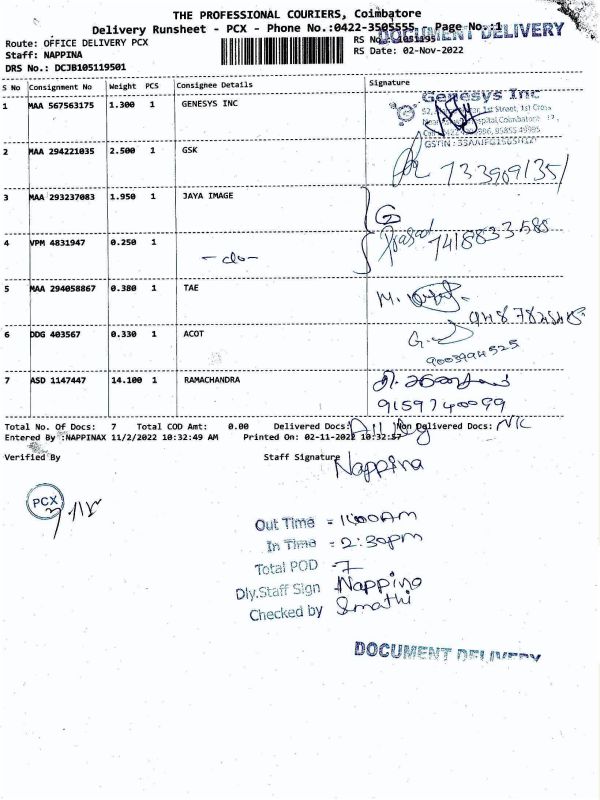 THE PROFESSIONAL COURIERS, Coimbatore
Delivery Runsheet - PCX - Phone No.:0422-3505555 Page No.:1
DOCUMENT DELIVERY
Route: OFFICE DELIVERY PCX RS No
Staff: NAPPINA RS Date: 02-Nov-2022
DRS No.: DCJB105119501
S No Consignment No Weight PCS Consignee Details Signature
1 MAA 567563175 1.300 1 GENESYS INC
Genesys Inc
1st Street, 1st Cross
2 MAA 294221035 2.500 1 GSK
7339691351
3 MAA 293237083 1.950 1 JAYA IMAGE
4 VPM 4831947 0.250 1 -do-
Prasad 7418833588
5 MAA 294058867 0.380 1 TAE
M.
6 DDG 403567 0.330 1 ACOT
G.
9003994525
7 ASD 1147447 14.100 1 RAMACHANDRA
9159740099
Total No. Of Docs: 7 Total COD Amt: 0.00 Delivered Docs: All Dly Non Delivered Docs: NIL
Entered By :NAPPINAX 11/2/2022 10:32:49 AM Printed On: 02-11-2022 10:32:57
Verified By Staff Signature Nappina
PCX
Out Time = 11:00AM
In Time = 2:30pm
Total POD - 7
Dly.Staff Sign Nappina
Checked by Smathi
DOCUMENT DELIVERY